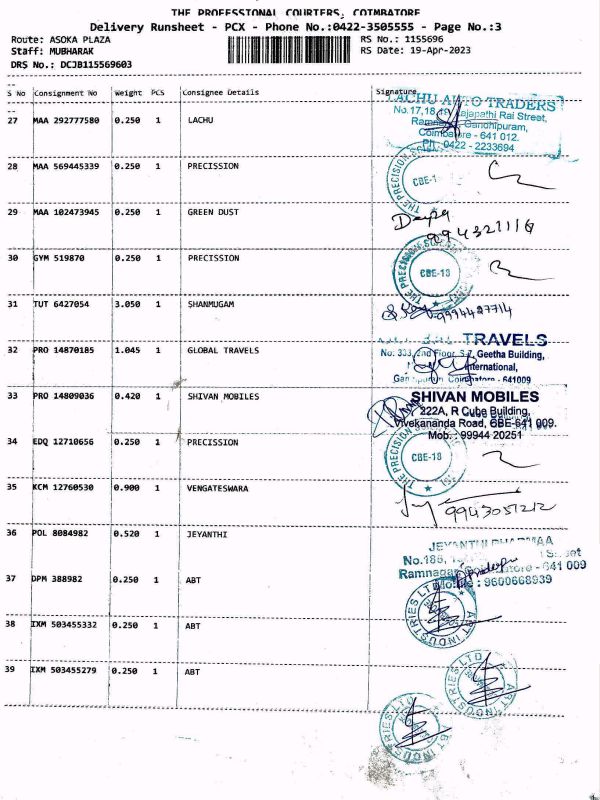 THE PROFESSIONAL COURIERS, COIMBATORE
Delivery Runsheet - PCX - Phone No.:0422-3505555 - Page No.:3
Route: ASOKA PLAZA RS No.: 1155696
Staff: MUBHARAK RS Date: 19-Apr-2023
DRS No.: DCJB115569603
S No Consignment No Weight PCS Consignee Details Signature
27 MAA 292777580 0.250 1 LACHU
LACHU AUTO TRADERS
No.17,18,19 Rajapathi Rai Street,
Gandhipuram,
Coimbatore - 641 012.
Ph: 0422 - 2233694
28 MAA 569445339 0.250 1 PRECISSION
THE PRECISION
CBE-1
29 MAA 102473945 0.250 1 GREEN DUST
Deepa
994321116
30 GYM 519870 0.250 1 PRECISSION
THE PRECISION
CBE-18
31 TUT 6427054 3.050 1 SHANMUGAM
9994487714
32 PRO 14870185 1.045 1 GLOBAL TRAVELS
TRAVELS
No: 333, 2nd Floor, Geetha Building,
International,
Coimbatore - 641009
33 PRO 14809036 0.420 1 SHIVAN MOBILES
SHIVAN MOBILES
222A, R Cube Building,
Vivekananda Road, CBE-641 009.
Mob. : 99944 20251
34 EDQ 12710656 0.250 1 PRECISSION
THE PRECISION
CBE-18
35 KCM 12760530 0.900 1 VENGATESWARA
9943051212
36 POL 8084982 0.520 1 JEYANTHI
JEYANTHI
No.186,
Ramnagar, Coimbatore - 641 009
Mobile : 9600668939
37 DPM 388982 0.250 1 ABT
ABT INDUSTRIES LTD
38 IXM 503455332 0.250 1 ABT
ABT INDUSTRIES LTD
39 IXM 503455279 0.250 1 ABT
ABT INDUSTRIES LTD